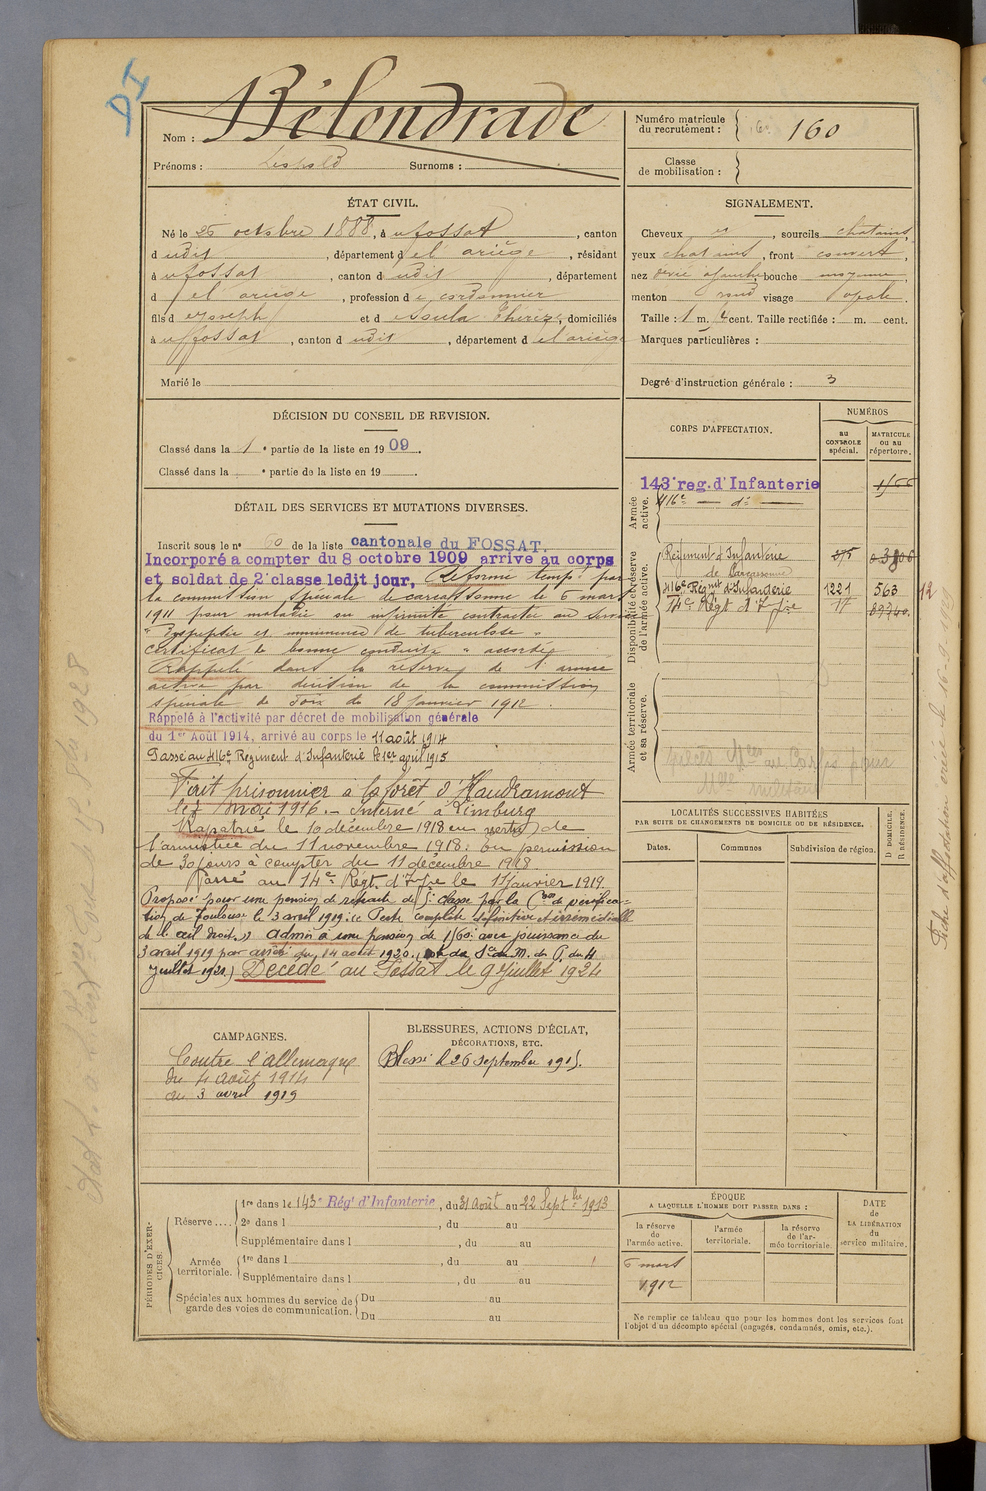 DI
Nom : Bélondrade
Prénoms : Léopold Surnoms :
Numéro matricule du recrutement : 160
Classe de mobilisation :
ÉTAT CIVIL.
Né le 25 octobre 1888, à u fossat, canton
d udit, département d el ariège, résidant
à u fossat, canton d udit, département
d el ariège, profession d e cordonnier
fils d e Joseph et d , domiciliés
à u fossat, canton d udit, département d e l'ariège
Marié le
SIGNALEMENT.
Cheveux , sourcils chatains,
yeux chatains, front couvert,
nez dévié à gauche bouche moyenne
menton rond visage ovale.
Taille : 1 m. cent. Taille rectifiée : m. cent.
Marques particulières :
Degré d'instruction générale : 3
DÉCISION DU CONSEIL DE REVISION.
Classé dans la 1 e partie de la liste en 1909.
Classé dans la e partie de la liste en 19 .
CORPS D'AFFECTATION.
NUMÉROS
AU CONTROLE SPÉCIAL.
MATRICULE OU AU RÉPERTOIRE.
Armée active.
143e reg. d'Infanterie
416e — do —
Disponibilité et réserve de l'armée active.
Régiment d'Infanterie de Carcassonne 275
416e Régmt d'Infanterie 1221 563 12
14e Régt d'Ife
Armée territoriale et sa réserve.
DÉTAIL DES SERVICES ET MUTATIONS DIVERSES.
Inscrit sous le n° 60 de la liste cantonale du FOSSAT.
Incorporé à compter du 8 octobre 1909 arrivé au corps
et soldat de 2e classe ledit jour, Réformé tempre par
la commission spéciale de carcassonne le 6 mars
1911 pour maladie ou infirmité contractée au service
"Dyspepsie et imminence de tuberculose"
certificat de bonne conduite "accordé"
Rappelé dans la réserve de l'armée
active par décision de la commission
spéciale de Foix du 18 Janvier 1912.
Rappelé à l'activité par décret de mobilisation générale
du 1er Août 1914, arrivé au corps le 11 août 1914
Passé au 416e Régiment d'Infanterie le 1er avril 1915
Fait prisonnier à la forêt d'Haudramont
le 7 mai 1916. - Interné à Limburg
Rapatrié le 10 décembre 1918 en vertu de
l'armistice du 11 novembre 1918: En permission
de 30 jours à compter du 11 décembre 1918
Passé au 14e Régt. d'Ife le 11 Janvier 1919.
Proposé pour une pension de retraite de 5e classe par la Con de vérifica-
tion de Toulouse le 3 avril 1919: "Perte complète définitive et irrémédiable
de l'œil droit." admis à une pension de 1160. avec jouissance du
3 avril 1919 par arrêté du 14 août 1920. du M. des P. du 4
juillet 1921) Décédé au Fossat le 9 Juillet 1924
LOCALITÉS SUCCESSIVES HABITÉES
PAR SUITE DE CHANGEMENTS DE DOMICILE OU DE RÉSIDENCE.
Dates. Communes Subdivision de région. D DOMICILE. R RÉSIDENCE.
CAMPAGNES.
Contre l'allemagne
du 4 août 1914
au 3 avril 1919
BLESSURES, ACTIONS D'ÉCLAT,
DÉCORATIONS, ETC.
Blessé le 26 septembre 1915.
PÉRIODES D'EXERCICES.
Réserve....
1re dans le 143e Régt d'Infanterie, du 31 Août au 22 Septbre 1913
2e dans l , du au
Supplémentaire dans l , du au
Armée territoriale.
1re dans l , du au
Supplémentaire dans l , du au
Spéciales aux hommes du service de garde des voies de communication.
Du au
Du au
ÉPOQUE
A LAQUELLE L'HOMME DOIT PASSER DANS :
la réserve de l'armée active.
l'armée territoriale.
la réserve de l'armée territoriale.
DATE DE LA LIBÉRATION du service militaire.
6 mars
1912
Ne remplir ce tableau que pour les hommes dont les services font
l'objet d'un décompte spécial (engagés, condamnés, omis, etc.).
Fiche d'affectation créée le 16-9-1929